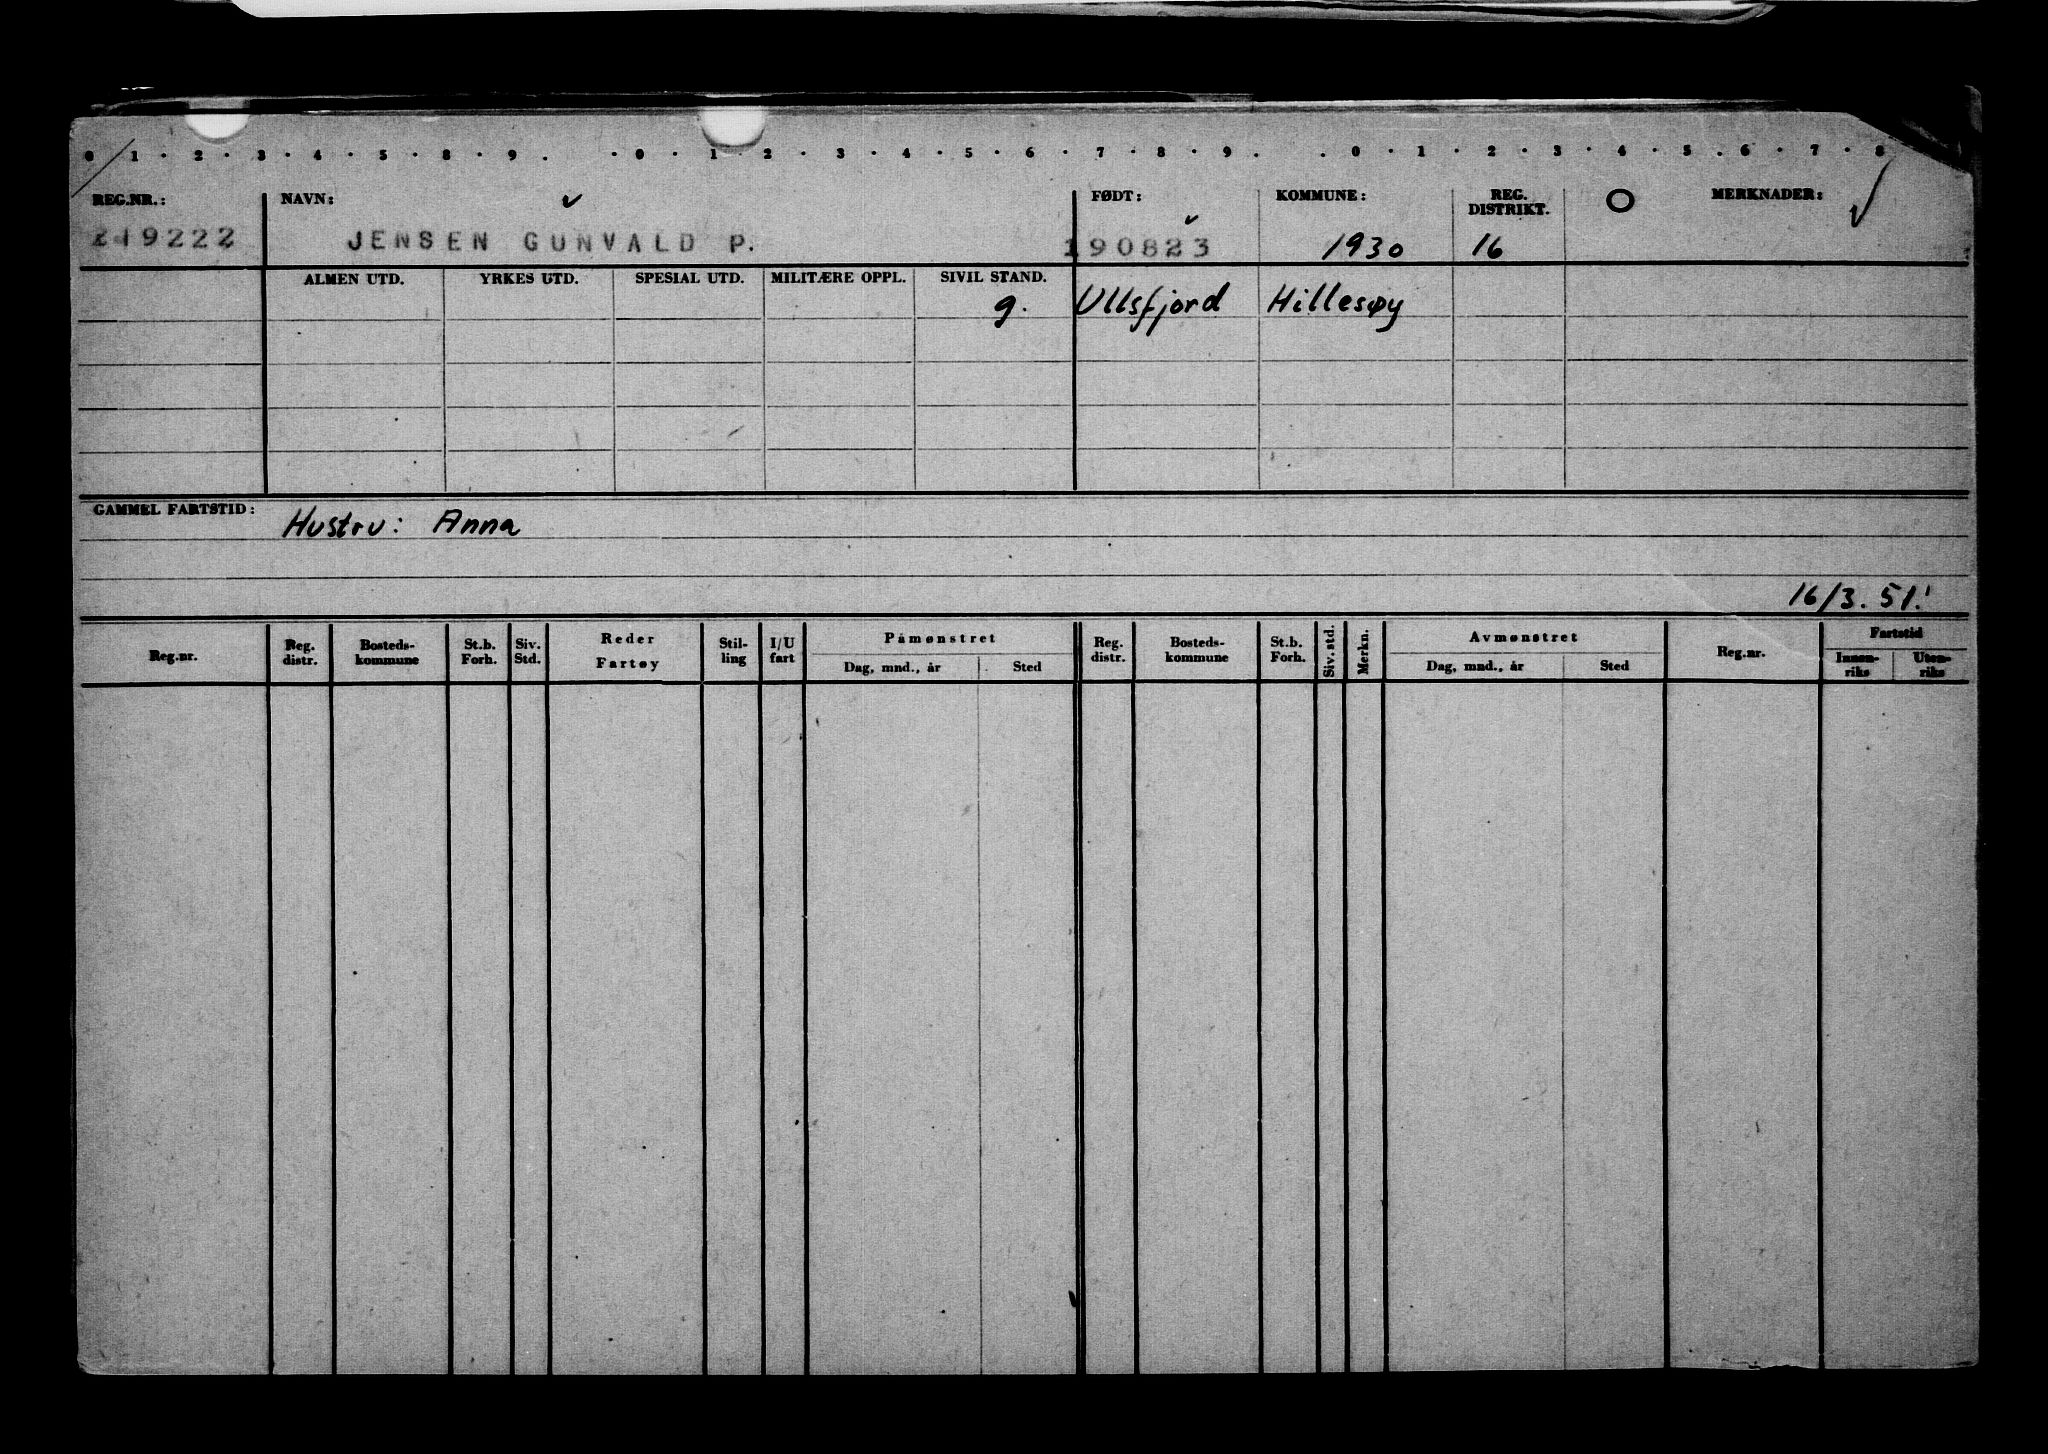 0 1 . 2 . 3 . 4 . 5 . 8 . 9 . . 0 . 1 . 2 . 3 . 4 . 5 . 6 . 7 . 8 . 9 . . 0 . 1 . 2 . 3 . 4 . 5 . 6 . 7 . 8
REG.NR.: NAVN: FØDT: KOMMUNE: REG. DISTRIKT. O MERKNADER:
219222 JENSEN GUNVALD P. 190823 1930 16
ALMEN UTD. YRKES UTD. SPESIAL UTD. MILITÆRE OPPL. SIVIL STAND.
g. Ullsfjord Hillesøy
GAMMEL FARTSTID: Hustru: Anna
16/3. 51.
Reg.nr. Reg. distr. Bosteds-kommune St.b. Forh. Siv. Std. Reder Fartøy Stil-ling I/U fart Påmønstret Dag, mnd., år Sted Reg. distr. Bosteds-kommune St.b. Forh. Siv. std. Merkn. Avmønstret Dag, mnd., år Sted Reg.nr. Fartstid Innen-riks Uten-riks